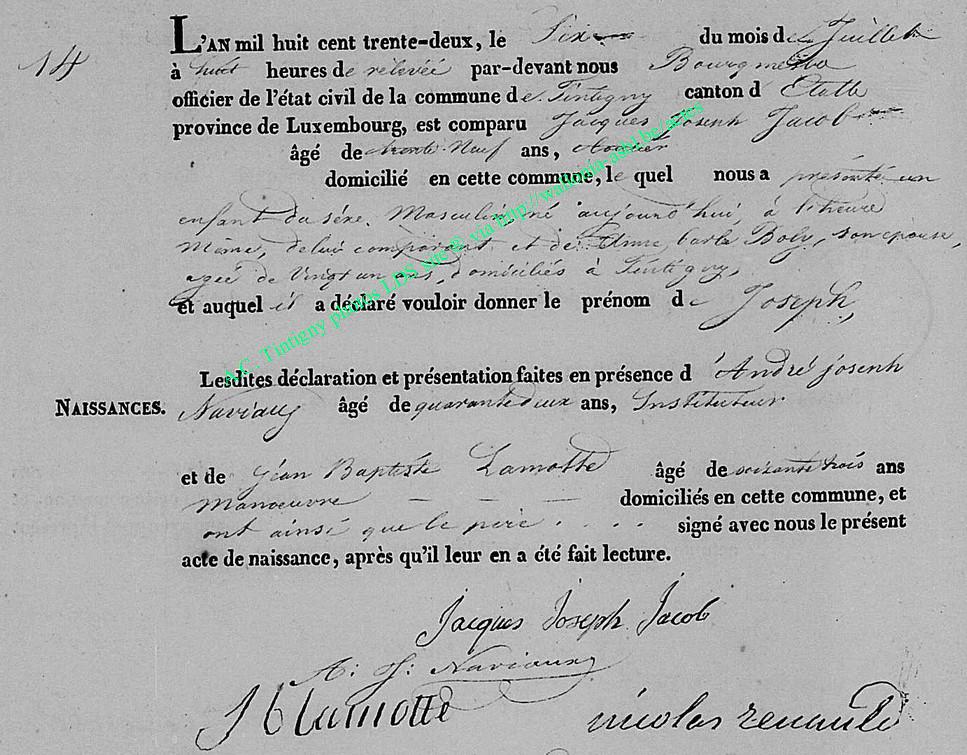 14
L'AN mil huit cent trente-deux, le Six du mois de Juillet
à huit heures de relevée par-devant nous Bourgmestre
officier de l'état civil de la commune de Tintigny canton d Etalle
province de Luxembourg, est comparu Jacques Joseph Jacob
âgé de trente Neuf ans,
domicilié en cette commune, le quel nous a présenté un
enfant du séxe Masculin, né aujourd'hui, à l'heure
Même, de lui comparant et de Anne Barbe Boly, son épouse,
agée de Vingt un ans, domiciliés à Tintigny,
et auquel il a déclaré vouloir donner le prénom de Joseph,
Lesdites déclaration et présentation faites en présence d'André joseph
NAISSANCES. Naviaux âgé de quarante deux ans, Instituteur
et de Jéan Baptiste Lamotte âgé de soixante trois ans
Manoeuvre — — — domiciliés en cette commune, et
ont ainsi que le père . . . . signé avec nous le présent
acte de naissance, après qu'il leur en a été fait lecture.
Jacques Joseph Jacob
A: J: Naviaux
J b lamotte nicolas renauld
A.C. Tintigny photos LDS site © via http://wallonia-asbl.be/actes